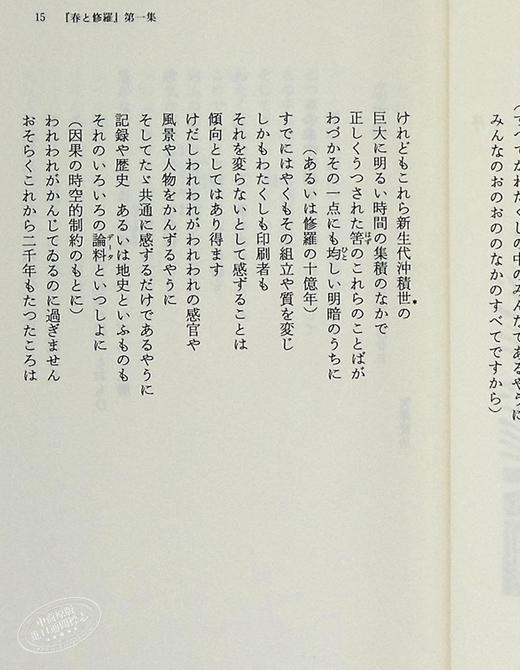 15　『春と修羅』第一集
（すべてがわたくしの中のみんなであるやうに
みんなのおのおののなかのすべてですから）
けれどもこれら新生代沖積世の
巨大に明るい時間の集積のなかで
正しくうつされた筈のこれらのことばが
はず
わづかその一点にも均しい明暗のうちに
ひと
（あるいは修羅の十億年）
すでにはやくもその組立や質を変じ
しかもわたくしも印刷者も
それを変らないとして感ずることは
傾向としてはあり得ます
けだしわれわれがわれわれの感官や
風景や人物をかんずるやうに
そしてたゞ共通に感ずるだけであるやうに
記録や歴史　あるいは地史といふものも
それのいろいろの論料といつしよに
データ
（因果の時空的制約のもとに）
われわれがかんじてゐるのに過ぎません
おそらくこれから二千年もたつたころは
中商原版